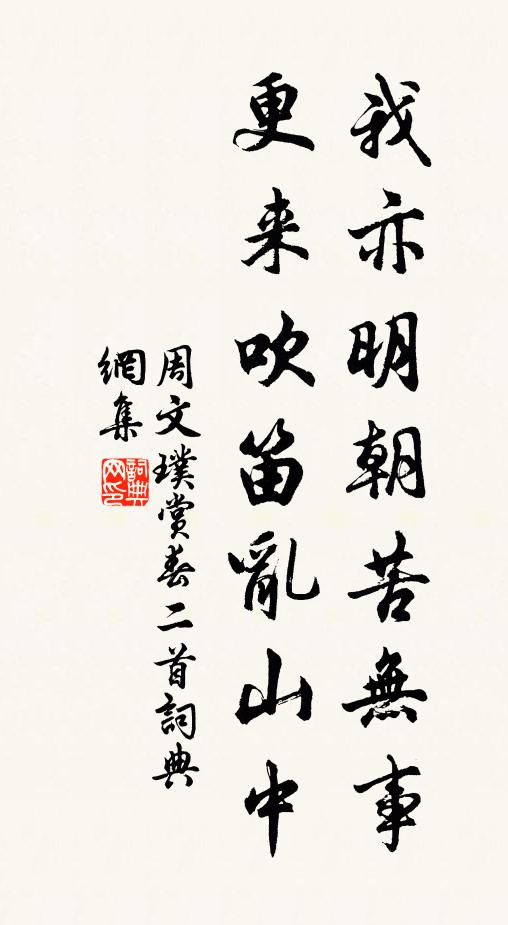 我亦明朝苦無事
更来吹笛亂山中
周文璞賞春二首詞典
網集
詞典
网印